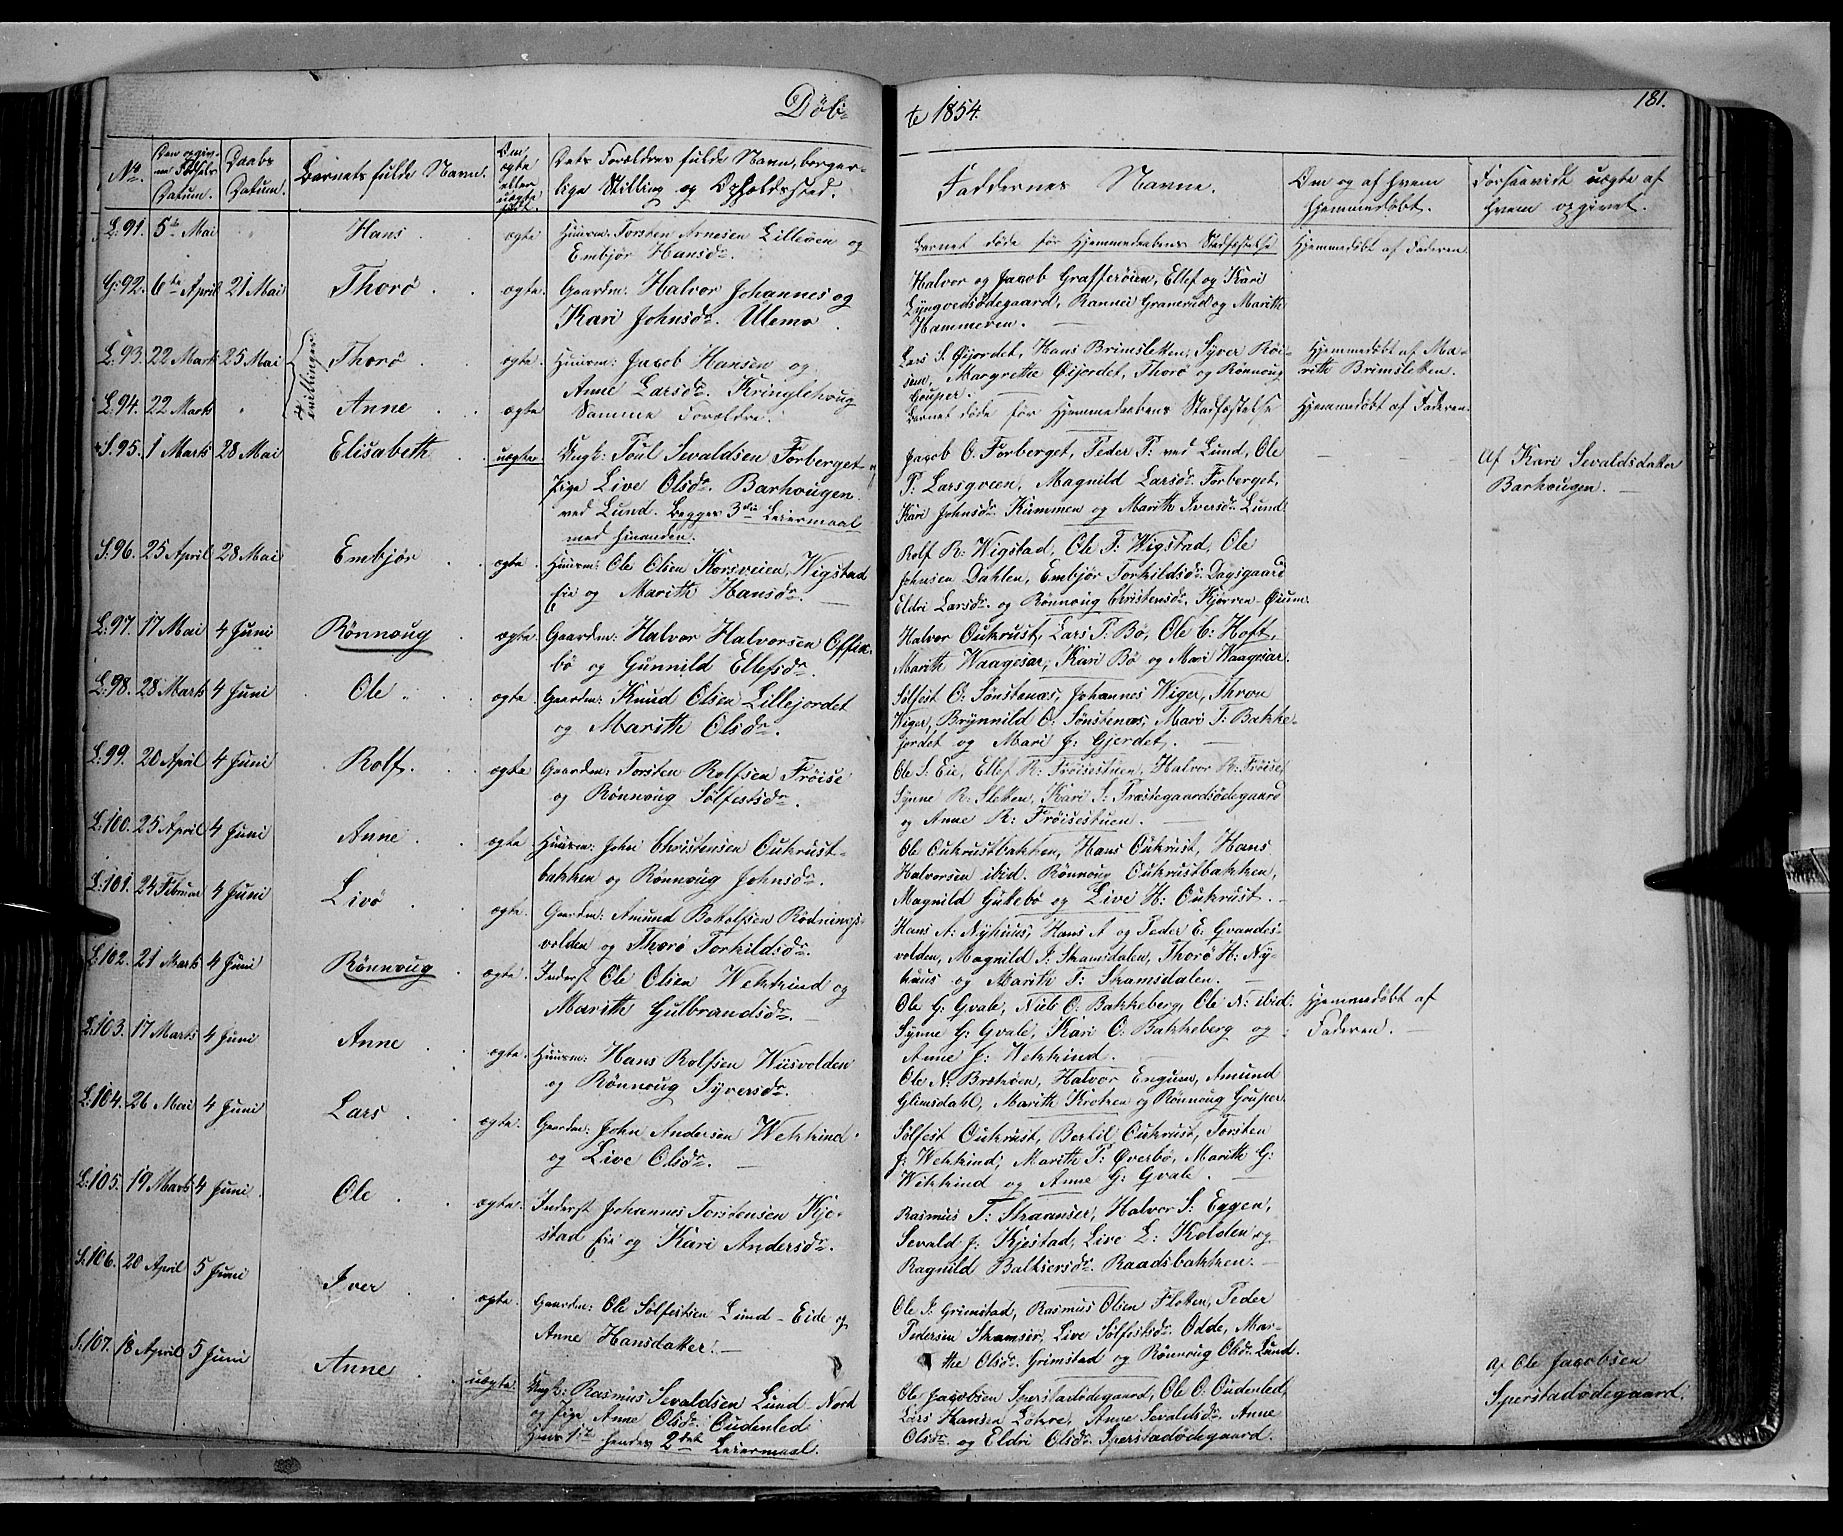 Døb-
te 1854.
181.
No. Den opgivne Fødsels Datum. Daabs Datum. Barnets fulde Navn. Om ægte eller uægte født. Dets Forældres fulde Navn, borgerlige Stilling og Opholdssted.
Faddernes Navne. Om og af hvem hjemmedøbt. Forsaavidt uægte af hvem opgivet.
L. 91. 5te Mai " Hans ægte Huusm: Torsten Arnesen Lilleøen og
Embjør Hansdr.
Barnet døde før Hjemmedaabens Stadfæstelse Hjemmedøbt af Faderen
G. 92. 6te April 21 Mai Thorø ægte. Gaardm: Halvor Johannes og
Kari Johnsdr. Ulemo
Halvor og Jacob Grafferøien, Ellef og Kari
Lyngvedsødegaard, Rannei Granerud og Marith
Hammeren.
L. 93. 22 Marts 25 Mai Tvillinger Thorø ægte Huusm: Jacob Hansen og
Anne Larsdr. Kringlehoug
Lars S. Øijordet, Hans Brimsletten, Syver Røi-
sen, Margrethe Øijordet, Thorø og Rønnoug
Gouper.
Hjemmedøbt af Ma-
rith Brimsletten.
L. 94. 22 Marts " Anne ægte Samme Forældre.
Barnet døde før Hjemmedaabens Stadfæstelse Hjemmedøbt af Faderen
S. 95. 1 Marts 28 Mai Elisabeth uægte Ungk: Poul Sevaldsen Forberget
Pige Live Olsdr. Barhougen
ved Lund. Begges 3die Leiermaal
med hinanden.
Jacob O. Forberget, Peder P: ved Lund, Ole
P. Larsgveen, Magnild Larsdr. Forberget,
Kari Johnsdr. Kummen og Marith Iversdr. Lund
Af Kari Sevaldsdatter
Barhougen.
S. 96. 25 April 28 Mai Embjør ægte Huusm: Ole Olsen Korsveien, Wigstad
Eie og Marith Hansdr.
Rolf R: Wigstad, Ole T: Wigstad, Ole
Johnsen Dahlen, Embjør Torkildsdr. Dagsgaard
Eldri Larsdr. og Rønnoug Christensdr. Kjørren-Øium.
L. 97. 17 Mai 4 Juni Rønnoug ægte. Gaardm: Halvor Halvorsen Offin-
bø og Gunnild Ellefsdr.
Halvor Oukrust, Lars P. Bø, Ole C: Hoft,
Marith Waagesar, Kari Bø og Mari Waagesar.
L. 98. 28 Marts 4 Juni Ole ægte. Gaardm: Knud Olsen Lillejordet
og Marith Olsdr.
Sølfest O: Sønstenæs, Johannes Wiger, Thron
Wiger, Brynnild O: Sønstenæs, Mari T: Bakke-
jordet og Mari J: Gjerdet.
L. 99. 20 April 4 Juni Rolf. ægte Gaardm: Torsten Rolfsen Frøise
og Rønnoug Sølfestsdr.
Ole S. Eie, Ellef R: Frøisestuen, Halvor R: Frøise,
Synne R: Sletten, Kari S: Præstegaardsødegaard
og Anne R: Frøisestuen.
L. 100. 25 April 4 Juni Anne ægte Huusm: John Christensen Oukrust-
bakken og Rønnoug Johnsdr.
Ole Oukrustbakken, Hans Oukrust, Hans
Halvorsen ibid. Rønnoug Oukrustbakken,
Magnild Gukebø og Live H: Oukrust.
L. 101. 24 Februar 4 Juni Livø ægte Gaardm: Amund Botolfsen Rødnings-
volden og Thorø Torkildsdr.
Hans A: Nyhuus, Hans A og Peder E. Gvandes-
volden, Magnild J. Skamsdalen, Thorø H: Ny-
huus og Marith T: Skamsdalen.
L. 102. 21 Marts 4 Juni Rønnoug ægte Inderst Ole Olsen Wekkind og
Marith Gulbrandsdr.
Ole G: Gvale, Niels O: Bakkeberg, Ole N: ibid:
Synne G: Gvale, Kari O: Bakkeberg og
Anne J: Wekkind.
Hjemmedøbt af
Faderen.
L. 103. 17 Marts 4 Juni Anne ægte Huusm: Hans Rolfsen Wiisvolden
og Rønnoug Syversdr.
Ole N: Brekøen, Halvor Engum, Amund
Glimsdahl, Marith Kroken og Rønnoug Gouper
L. 104. 26 Mai 4 Juni Lars ægte. Gaardm: John Andersen Wekkind
og Live Olsdr.
Sølfest Oukrust, Bertil Oukrust, Torsten
J: Wekkind, Marith P: Øverbø, Marith G:
Wekkind og Anne G: Gvale.
L. 105. 19 Marts 4 Juni Ole ægte. Inderst Johannes Torstensen Kje-
stad Eie og Kari Andersdr.
Rasmus T: Straanser, Halvor S: Eggen,
Sevald J: Kjestad, Live E: Kolden og
Ragnild Baltsersdr. Raadsbakken.
S. 106. 20 April 5 Juni Iver ægte. Gaardm: Ole Sølfestsen Lund-Eide og
Anne Hansdatter.
Ole I. Grimstad, Rasmus Olsen Floten, Peder
Pedersen Skamsar, Live Sølfestsdr. Odde, Mar-
the Olsdr. Grimstad og Rønnoug Olsdr. Lund.
S. 107. 18 April 5 Juni Anne uægte Ungk: Rasmus Sevaldsen Lund-Nord
og Pige Anne Olsdr. Oudenled
Hans 1ste hendes 2det Leiermaal.
Ole Jacobsen Sperstadødegaard, Ole O. Oudenled
Lars Hansen Løkre, Anne Sevaldsdr., Anne
Olsdr. og Eldri Olsdr. Sperstadødegaard.
Af Ole Jacobsen
Sperstadødegaard.